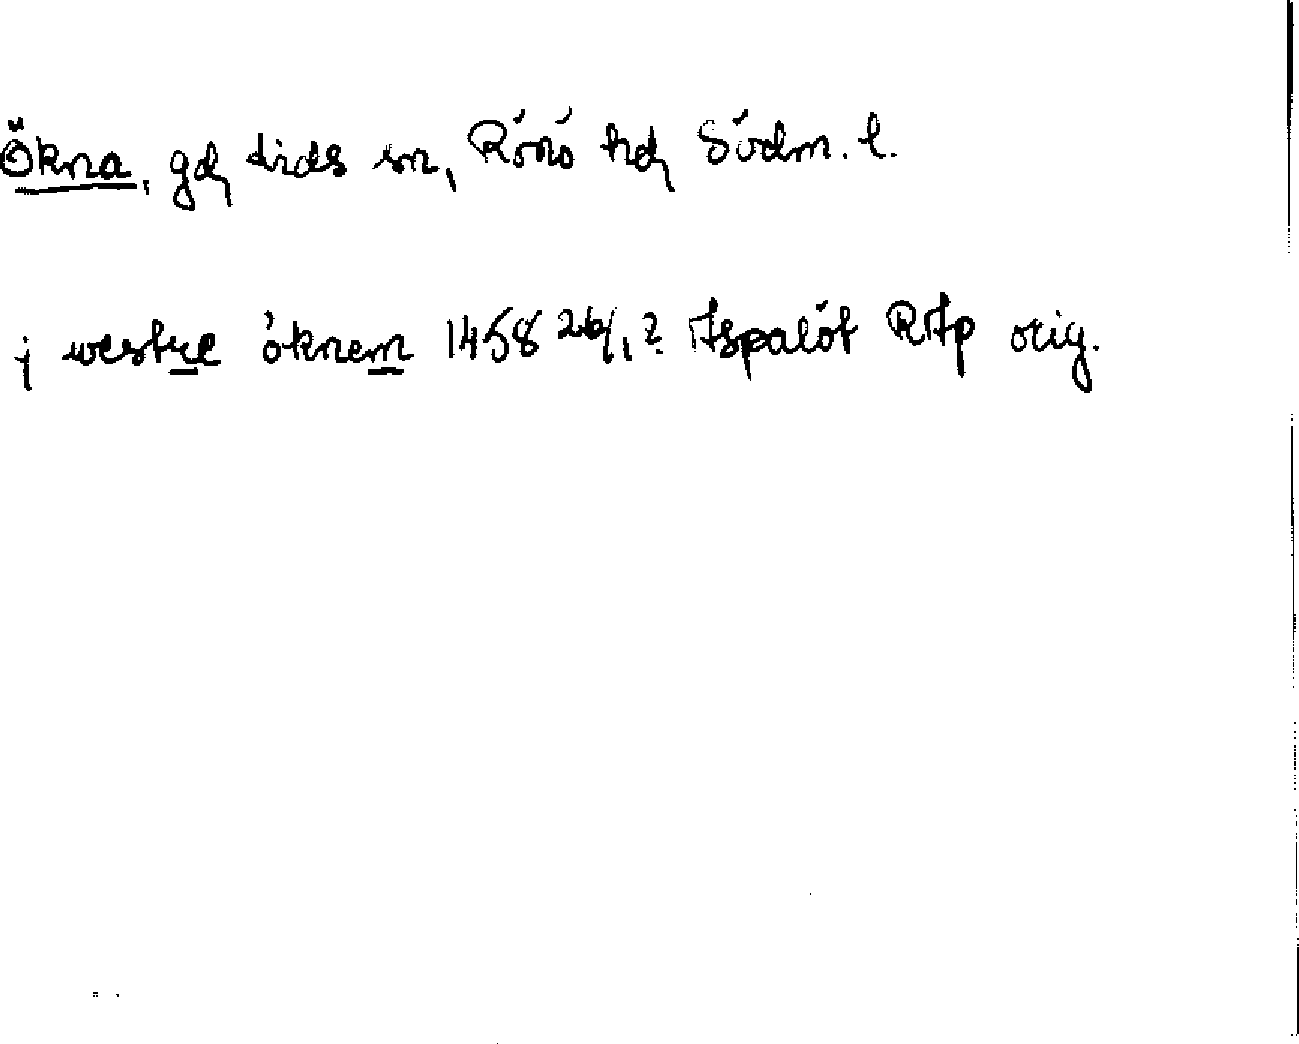 Ökna, gd, Lids sn, Rönö hd, Södm. l.
j westre öknem 1458 26/1? Aspalöt RAp orig.